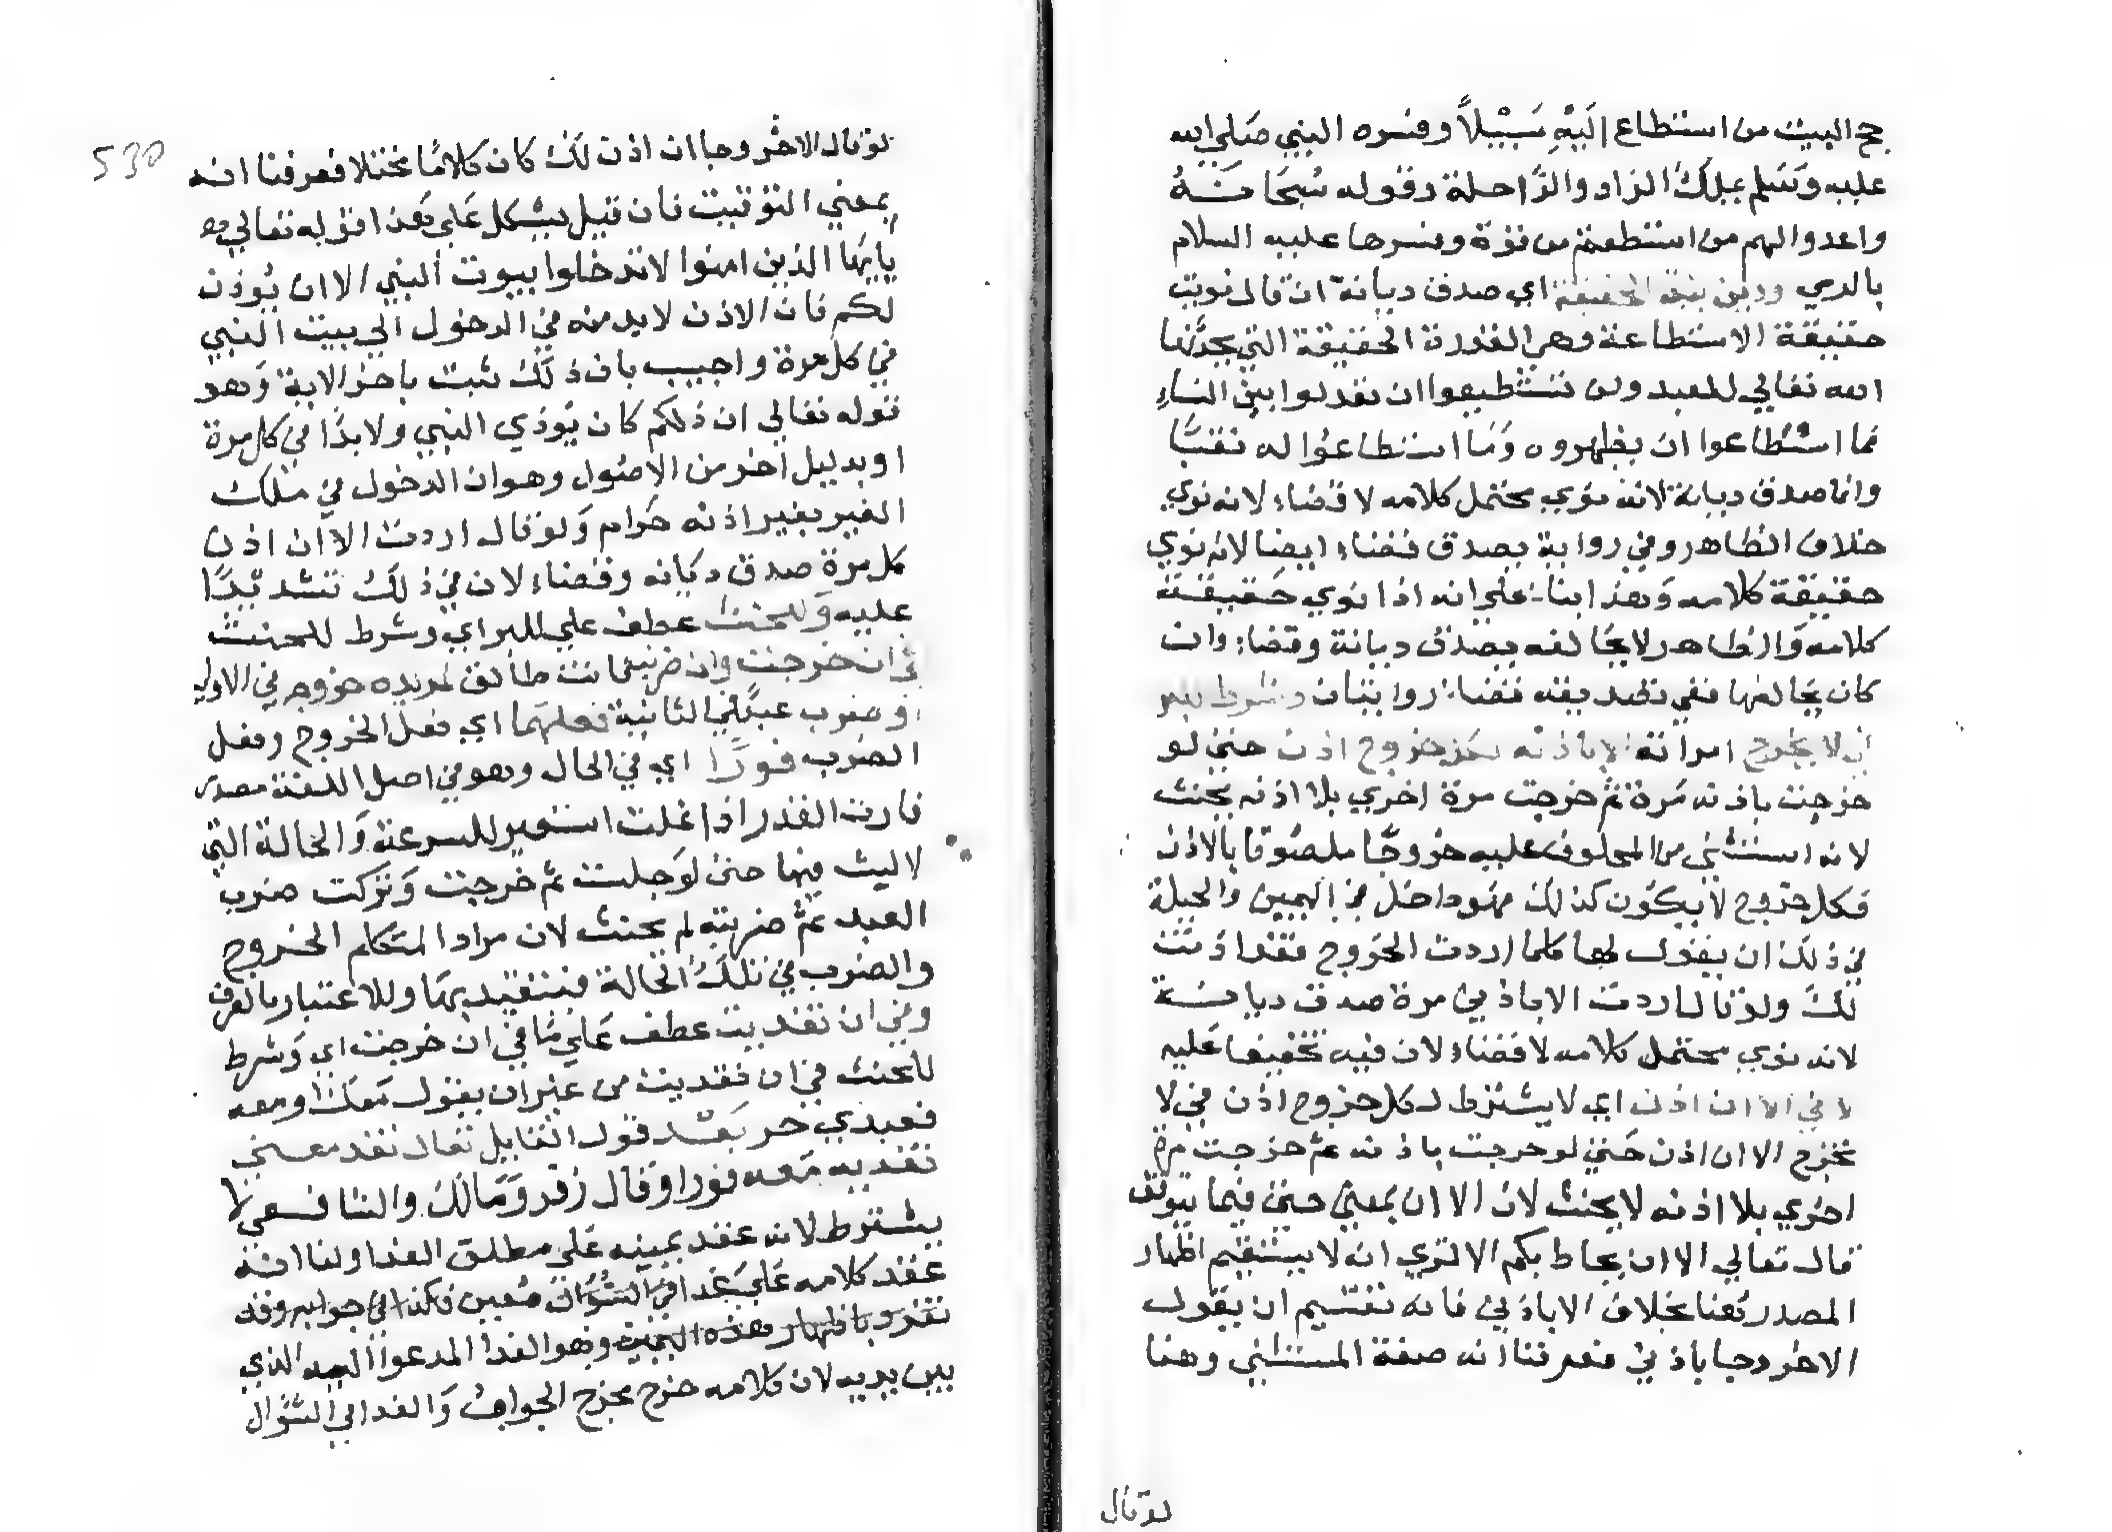 حج البيت من استطاع اليه سبيلاً وفسره النبي صلى الله
عليه وسلم بملك الزاد والراحلة وقوله سبحانه
واعدوا لهم من استطعتم من قوة وفسرها عليه السلام
بالرمي ودين بنية الحقيقة اي صدق ديانة ان قال نويت
حقيقة الاستطاعة وهي القدرة الحقيقة التي يحدثها
الله تعالي للعبد ولن تستطيعوا ان تعدلوا بين النساء
فما اسطاعوا ان يظهروه وما استطاعوا له نقبًا
وانما صدق ديانة لانه نوي محتمل كلامه لا قضاء لانه نوي
خلاف الظاهر وفي رواية يصدق قضاء ايضا لانه نوي
حقيقة كلامه وهذا بناء علي انه اذا نوي حقيقة
كلامه والظاهر لا يخالفه يصدق ديانة وقضاء وان
كان يخالفها ففي تصديقه قضاء روايتان وشرط للبر
في لا يخرج امراته الا باذنه لكل خروج اذن حتي لو
خرجت باذنه مرة ثم خرجت مرة اخري بلا اذنه يحنث
لانه استثني من المحلوف عليه خروجًا ملصوقا بالاذن
فكل خروج لا يكون كذلك فهو داخل في اليمين والحيلة
في ذلك ان يقول لها كلما اردت الخروج فقد اذنت
لك ولو قال اردت الا باذني مرة صدق ديانة
لانه نوي محتمل كلامه لا قضاء لان فيه تخفيفا عليه
لا في الا ان اذن اي لا يشترط لكل خروج اذن في لا
تخرج الا ان اذن حتي لو خرجت باذنه ثم خرجت مرة
اخري بلا اذنه لا يحنث لان الا ان بمعني حتي فيما يتوقت
قال تعالي الا ان يحاط بكم الا تري انه لا يستقيم اظهار
المصدر هنا بخلاف الا باذني فانه تقسيم ان يقول
الا خروجا باذني فعرفنا انه صفة المستثني وهنا
لو قال
530
لو قال الا خروجا ان اذن لك كان كلامًا مختلا فعرفنا انه
بمعني التوقيت فان قيل يشكل علي هذا قوله تعالي
يايها الذين امنوا لا تدخلوا بيوت النبي الا ان يوذن
لكم فان الاذن لا بد منه في الدخول الي بيت النبي
في كل مرة واجيب بان ذلك ثبت باخر الاية وهو
قوله تعالي ان ذلكم كان يوذي النبي ولا بدا في كل مرة
او بدليل اخر من الاصول وهو ان الدخول في ملك
الغير بغير اذنه حرام ولو قال اردت الا ان اذن
كل مرة صدق ديانه وقضاء لان في ذلك تشديدًا
عليه وللحنث عطف علي للبر اي وشرط للحنث
في ان خرجت وان ضربت فانت طالق لمريده خروج في الاولي
او ضرب عبد في الثانية فعلهما اي فعل الخروج وفعل
الضرب فورًا اي في الحال وهو في اصل اللغة مصدر
فارت القدر اذا غلت استعير للسرعة والحالة التي
لا لبث فيها حتي لو جلست ثم خرجت وتركت ضرب
العبد ثم ضربته لم يحنث لان مراد المتكلم الخروج
والضرب في تلك الحالة فتتقيد بها وللاعتبار بالعرف
وفي ان تغديت عطف علي ما في ان خرجت اي وشرط
للحنث في ان تغديت من غير ان يقول معك او معه
فعبدي حر بعد قول القايل تعال تغد معي
تغديه معه فورا وقال زفر ومالك والشافعي لا
يشترط لانه عقد يمينه علي مطلق الغدا ولنا انه
عقد كلامه علي غدا في السؤال معين فكذا في جوابه وقد
تفرد باظهار هذه اليمين وهو الغدا المدعوا اليه الذي
بين يديه لان كلامه خرج مخرج الجواب والغدا في السؤال